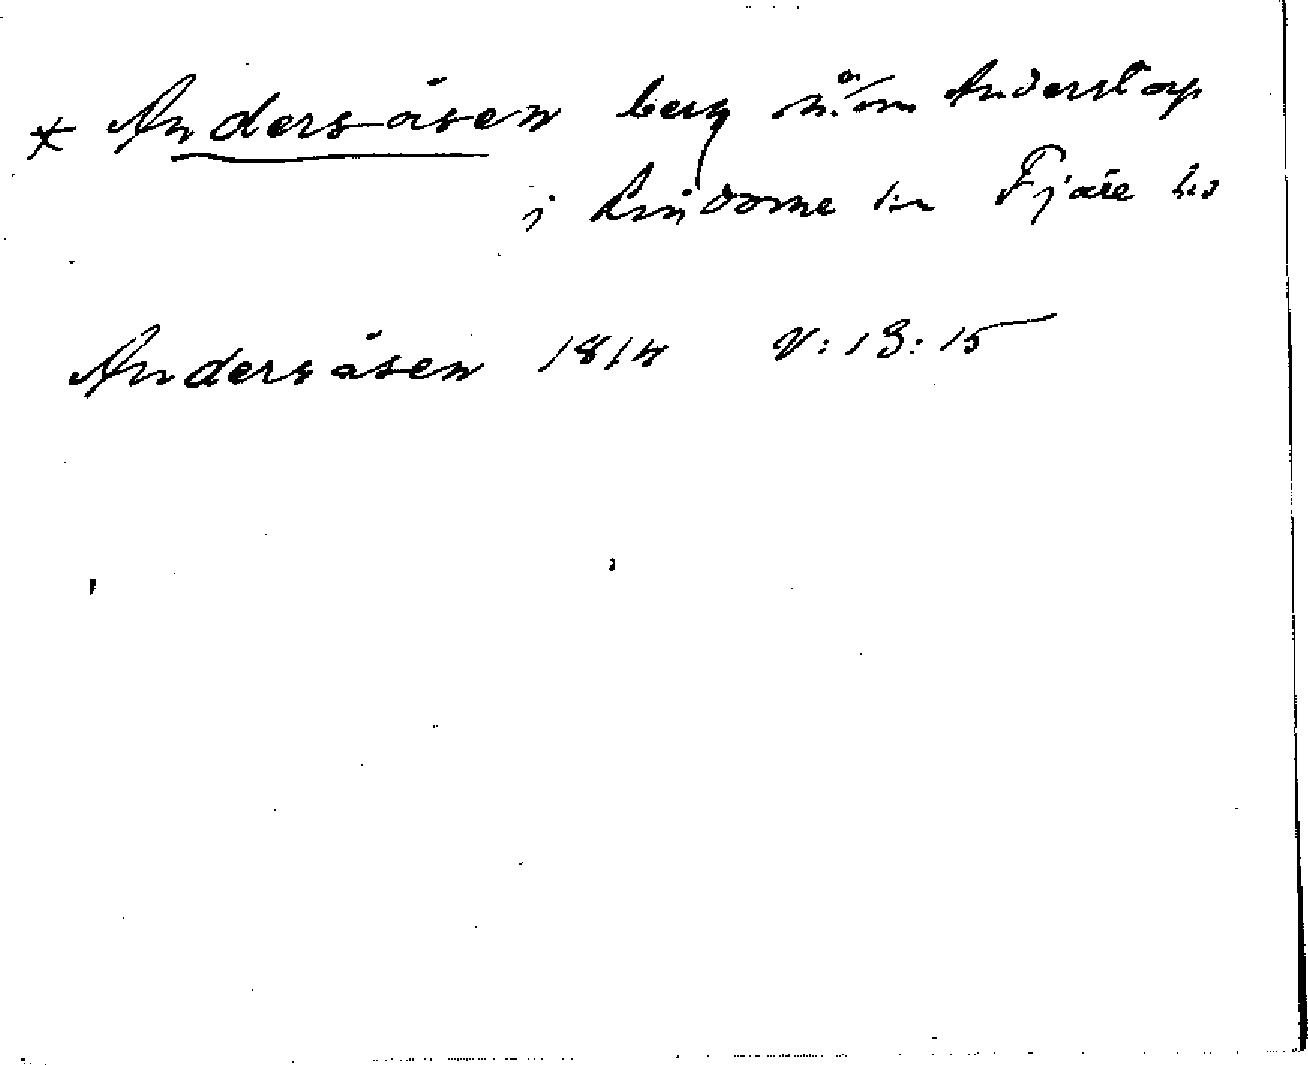 * Andersåsen berg n. om Anderstorp
i Lindome sn Fjäre hd
Andersåsen 1814 V:13:15